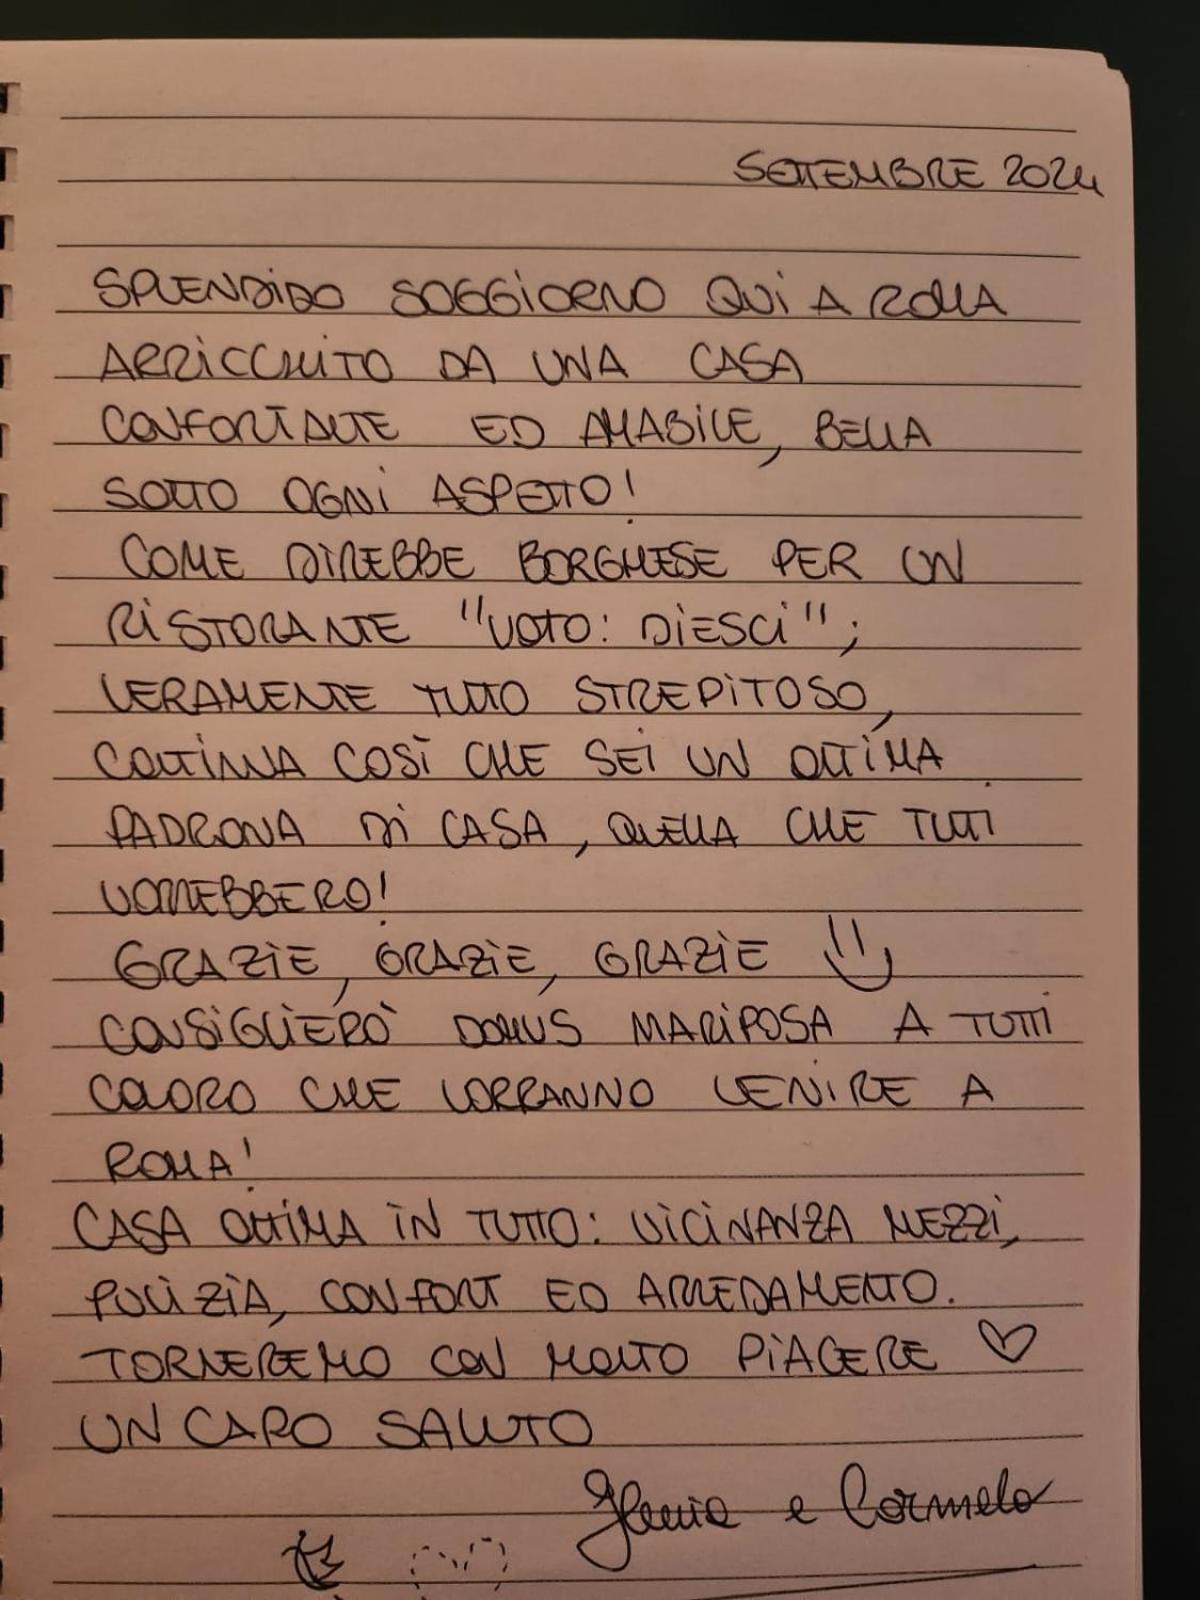 SETTEMBRE 2024
SPLENDIDO SOGGIORNO QUI A ROMA
ARRICCHITO DA UNA CASA
CONFORTANTE ED AMABILE, BELLA
SOTTO OGNI ASPETTO!
COME DIREBBE BORGHESE PER UN
RISTORANTE "VOTO: DIESCI";
VERAMENTE TUTTO STREPITOSO,
CONTINUA COSÌ CHE SEI UN OTTIMA
PADRONA DI CASA, QUELLA CHE TUTTI
VORREBBERO!
GRAZIE, GRAZIE, GRAZIE
CONSIGLIERÒ DOMUS MARIPOSA A TUTTI
COLORO CHE VORRANNO VENIRE A
ROMA!
CASA OTTIMA IN TUTTO: VICINANZA MEZZI,
PULIZIA, CONFORT ED ARREDAMENTO.
TORNEREMO CON MOLTO PIACERE ♡
UN CARO SALUTO
e Carmelo